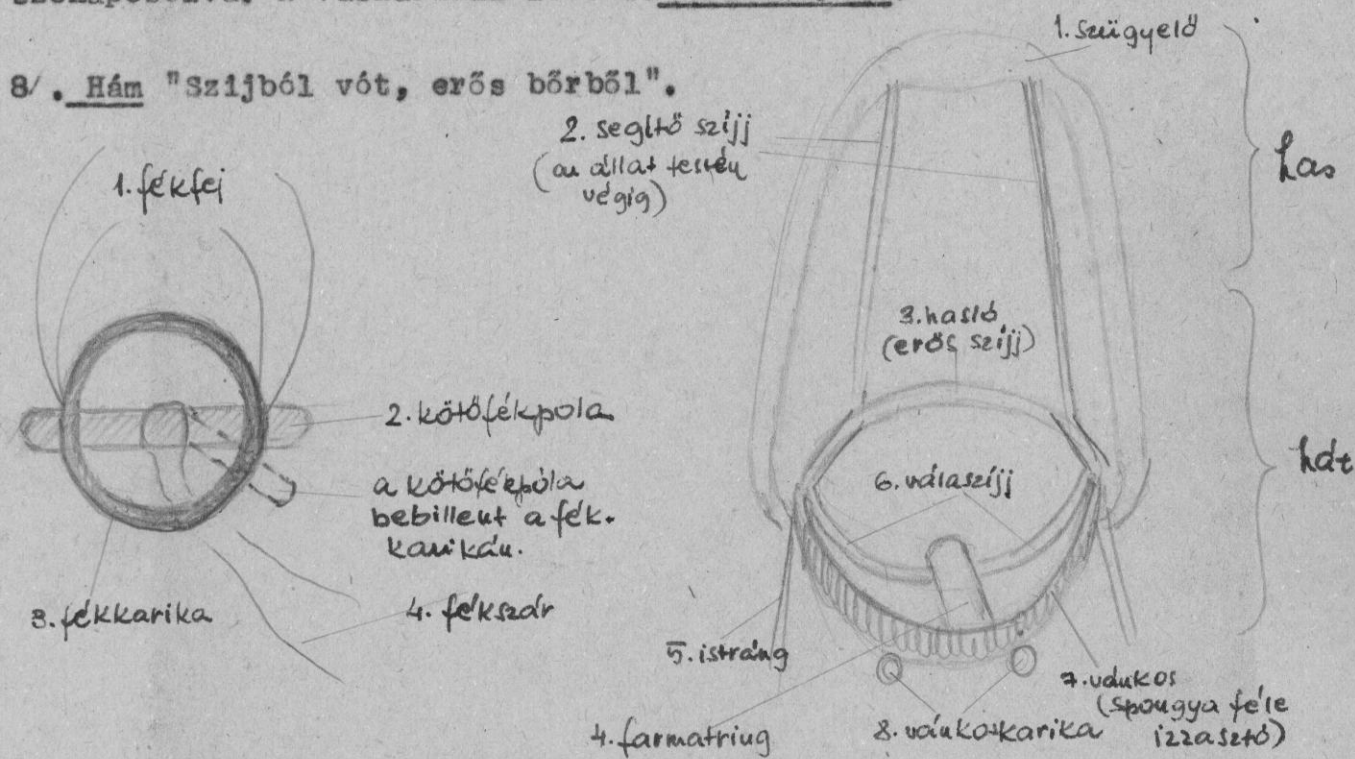 8/. Hám "Szijból vót, erős bőrből".
1. fékfej
2. kötőfékpola
a kötőfékpóla
bebillent a fék-
karikán.
3. fékkarika
4. fékszár
1. szügyelő
2. segítő szíjj
(az állat testén
végig)
has
3. hasló
(erős szíjj)
hát
6. válaszíjj
5. istráng
4. farmatring
8. vánkoskarika
7. vánkos
(spongya féle
izzasztó)